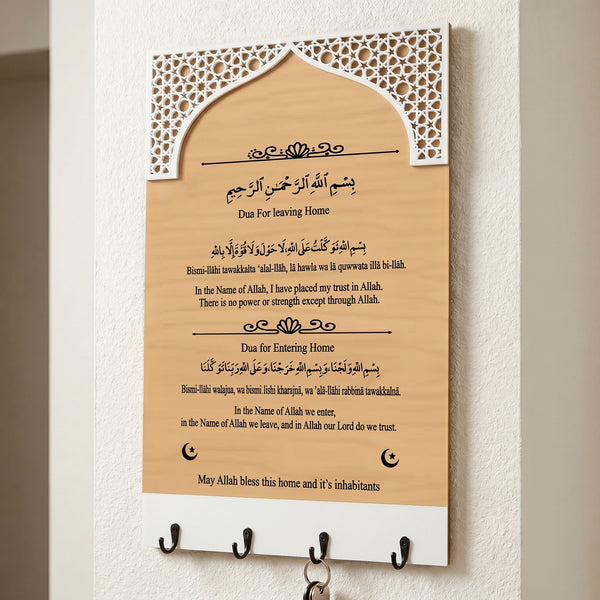 بِسْمِ ٱللَّهِ ٱلرَّحْمَٰنِ ٱلرَّحِيمِ
Dua For leaving Home
بِسْمِ اللهِ تَوَكَّلْتُ عَلَى اللهِ، لَا حَوْلَ وَلَا قُوَّةَ إِلَّا بِاللهِ
Bismi-llāhi tawakkalta ‘alal-llāh, lā hawla wa lā quwwata illā bi-llāh.
In the Name of Allah, I have placed my trust in Allah.
There is no power or strength except through Allah.
Dua for Entering Home
بِسْمِ اللهِ وَلَجْنَا، وَبِسْمِ اللهِ خَرَجْنَا، وَعَلَى اللهِ رَبِّنَا تَوَكَّلْنَا
Bismi-llāhi walajua, wa bismi lishi kharajnā, wa ’alā-llāhi rabbinā tawakkalnā.
In the Name of Allah we enter,
in the Name of Allah we leave, and in Allah our Lord do we trust.
May Allah bless this home and it’s inhabitants